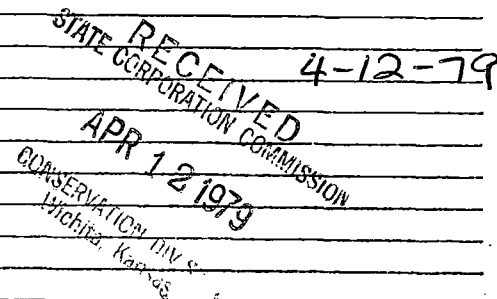 RECEIVED
STATE CORPORATION COMMISSION
4-12-79
APR 12 1979
CONSERVATION DIV
Wichita, Kansas